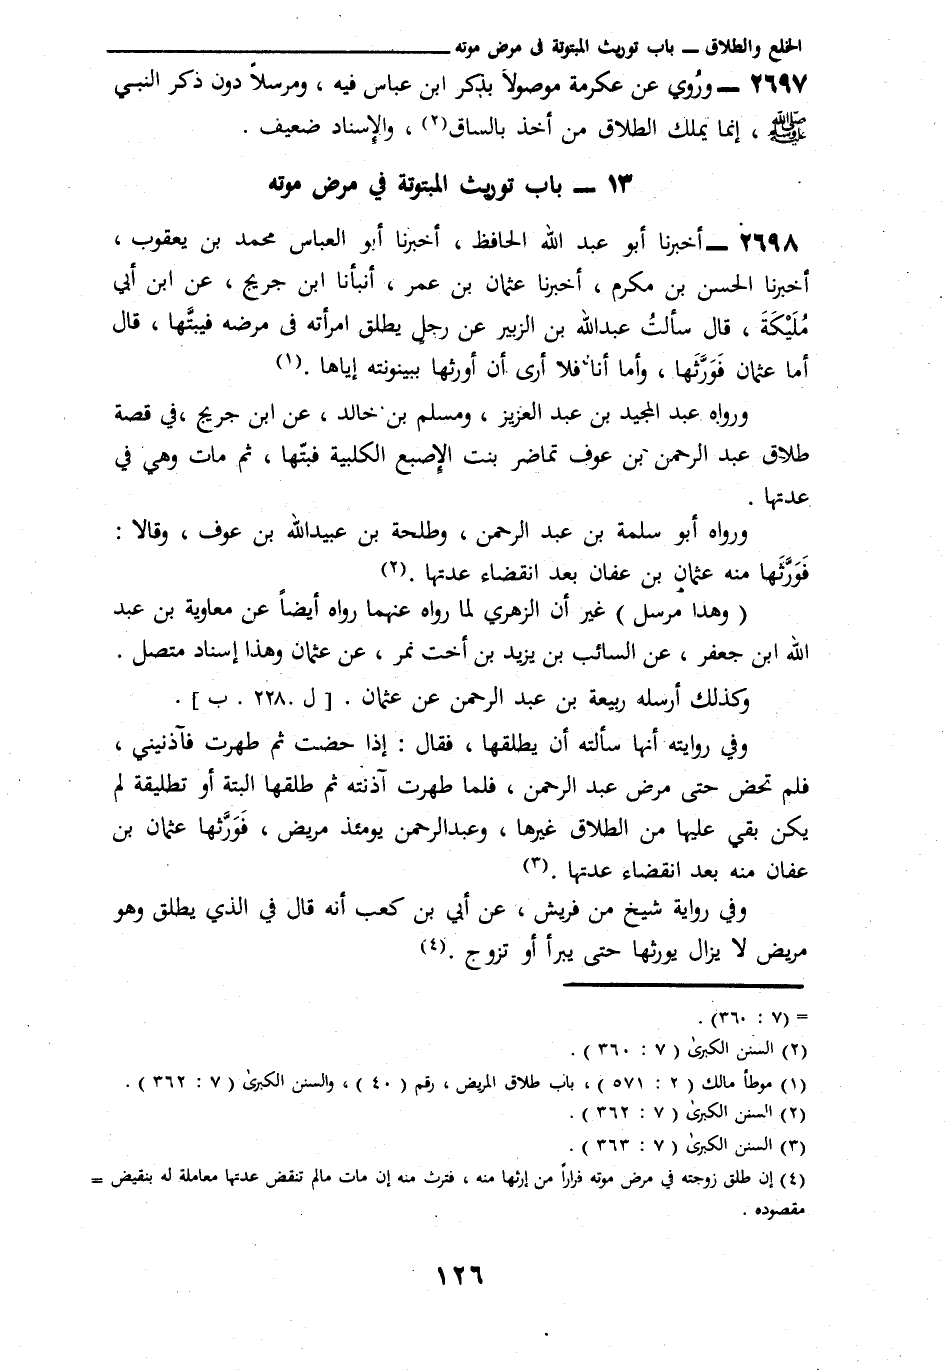 الخلع والطلاق ــ باب توريث المبتوتة فى مرض موته
٢٦٩٧ ــ ورُوي عن عكرمة موصولاً بذكر ابن عباس فيه ، ومرسلاً دون ذكر النبي
ﷺ ، إنما يملك الطلاق من أخذ بالساق(٢) ، والإسناد ضعيف .
١٣ ــ باب توريث المبتوتة في مرض موته
٢٦٩٨ ــ أخبرنا أبو عبد الله الحافظ ، أخبرنا أبو العباس محمد بن يعقوب ،
أخبرنا الحسن بن مكرم ، أخبرنا عثمان بن عمر ، أنبأنا ابن جريج ، عن ابن أبي
مُلَيْكَةَ ، قال سألتُ عبدالله بن الزبير عن رجل يطلق امرأته فى مرضه فيبتَّها ، قال
أما عثمان فَوَرَّثَها ، وأما أنا فلا أرى أن أورثها ببينونته إياها .(١)
ورواه عبد المجيد بن عبد العزيز ، ومسلم بن خالد ، عن ابن جريج ،في قصة
طلاق عبد الرحمن بن عوف تماضر بنت الإصبع الكلبية فبتّها ، ثم مات وهي في
عدتها .
ورواه أبو سلمة بن عبد الرحمن ، وطلحة بن عبيدالله بن عوف ، وقالا :
فَوَرَّثَها منه عثمان بن عفان بعد انقضاء عدتها .(٢)
( وهذا مرسل ) غير أن الزهري لما رواه عنهما رواه أيضاً عن معاوية بن عبد
الله ابن جعفر ، عن السائب بن يزيد بن أخت نمر ، عن عثمان وهذا إسناد متصل .
وكذلك أرسله ربيعة بن عبد الرحمن عن عثمان . [ ل .٢٢٨ . ب ] .
وفي روايته أنها سألته أن يطلقها ، فقال : إذا حضت ثم طهرت فآذنيني ،
فلم تحض حتى مرض عبد الرحمن ، فلما طهرت آذنته ثم طلقها البتة أو تطليقة لم
يكن بقي عليها من الطلاق غيرها ، وعبدالرحمن يومئذ مريض ، فَوَرَّثها عثمان بن
عفان منه بعد انقضاء عدتها .(٣)
وفي رواية شيخ من قريش ، عن أبي بن كعب أنه قال في الذي يطلق وهو
مريض لا يزال يورثها حتى يبرأ أو تزوج .(٤)
= (٧ : ٣٦٠) .
(٢) السنن الكبرىٰ ( ٧ : ٣٦٠ ) .
(١) موطأ مالك ( ٢ : ٥٧١ ) ، باب طلاق المريض ، رقم ( ٤٠ ) ، والسنن الكبرىٰ ( ٧ : ٣٦٢ ) .
(٢) السنن الكبرىٰ ( ٧ : ٣٦٢ ) .
(٣) السنن الكبرىٰ ( ٧ : ٣٦٣ ) .
(٤) إن طلق زوجته في مرض موته فراراً من إرثها منه ، فترث منه إن مات مالم تنقض عدتها معاملة له بنقيض =
مقصوده .
١٢٦